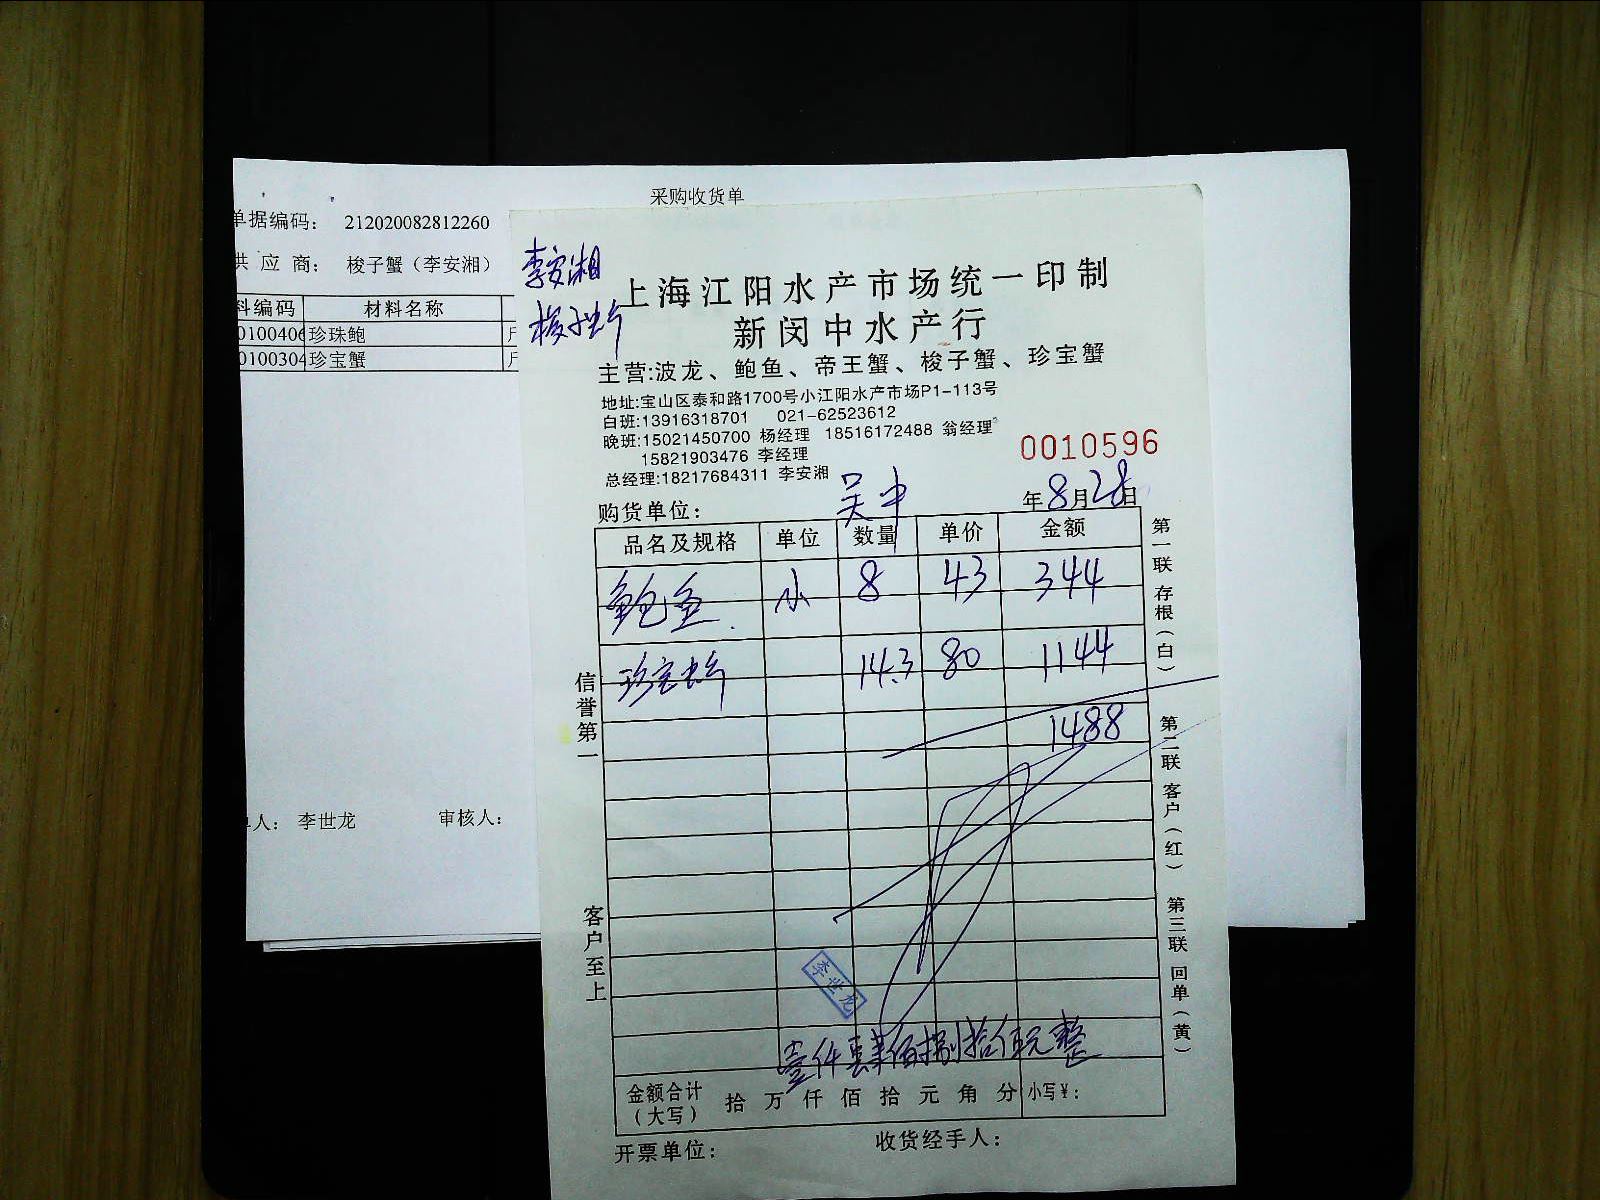 采购收货单
单据编码: 212020082812260
供 应 商: 梭子蟹（李安湘）
料编码 材料名称
0100406 珍珠鲍
0100304 珍宝蟹
单人: 李世龙 审核人:
李安湘
梭子蟹
上海江阳水产市场统一印制
新闵中水产行
主营:波龙、鲍鱼、帝王蟹、梭子蟹、珍宝蟹
地址:宝山区泰和路1700号小江阳水产市场P1-113号
白班:13916318701 021-62523612
晚班:15021450700 杨经理 18516172488 翁经理
15821903476 李经理
总经理:18217684311 李安湘
0010596
购货单位: 吴中 年8月28日
品名及规格 单位 数量 单价 金额
鲍鱼 小 8 43 344
珍宝蟹 14.3 80 1144
1488
信誉第一
客户至上
第一联 存根（白）
第二联 客户（红）
第三联 回单（黄）
李世龙
壹仟肆佰捌拾 元整
金额合计（大写） 拾 万 仟 佰 拾 元 角 分 小写¥:
开票单位: 收货经手人: